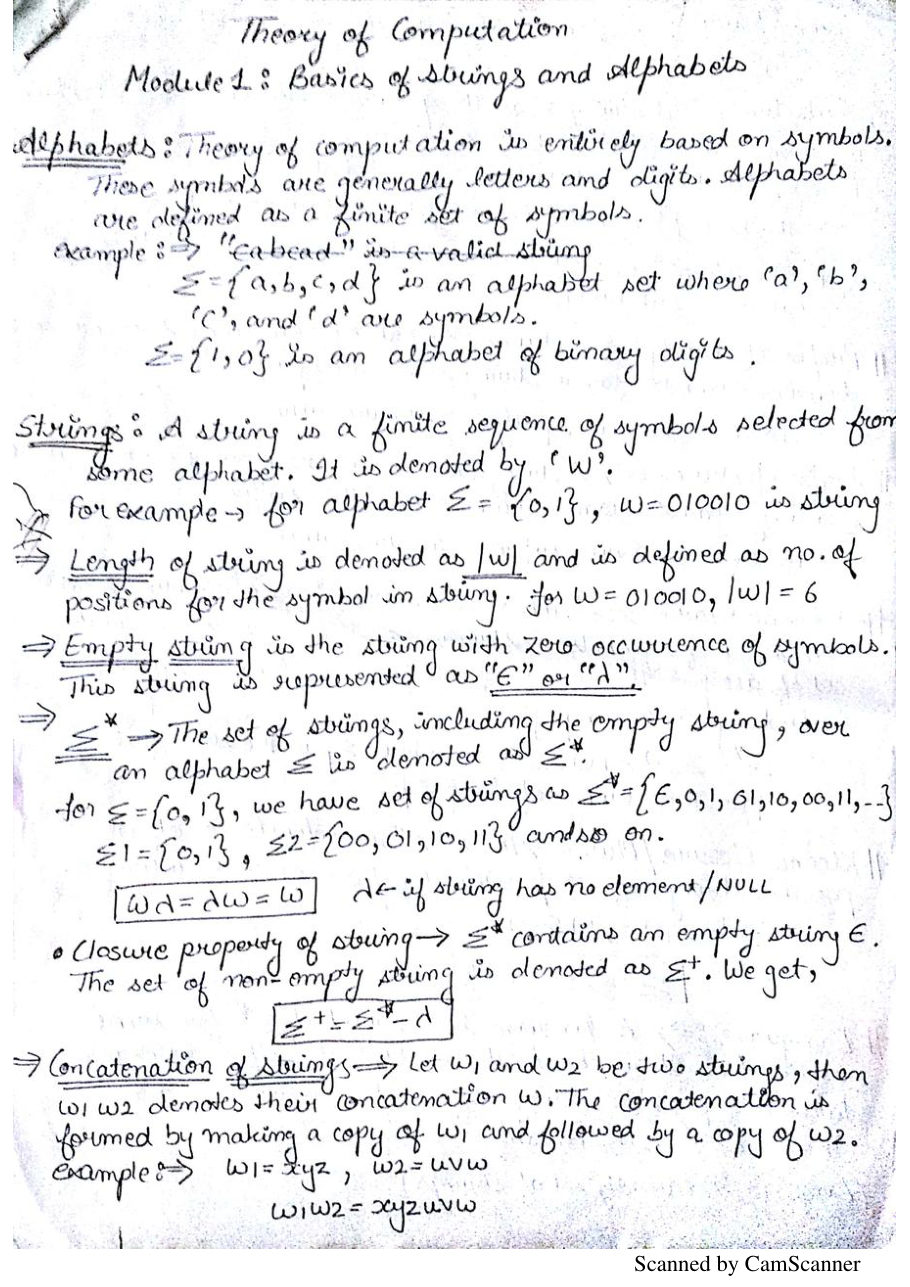 Theory of Computation
Module 1: Basics of strings and Alphabets
Alphabets: Theory of computation is entirely based on symbols.
These symbols are generally letters and digits. Alphabets
are defined as a finite set of symbols.
example:⇒ "cabcad" is a valid string
Σ={a,b,c,d} is an alphabet set where 'a', 'b',
'c', and 'd' are symbols.
Σ={1,0} is an alphabet of binary digits.
Strings: A string is a finite sequence of symbols selected from
some alphabet. It is denoted by 'W'.
For example→ for alphabet Σ = {0,1}, w=010010 is string
⇒ Length of string is denoted as |w| and is defined as no. of
positions for the symbol in string. for w= 010010, |w| = 6
⇒ Empty string is the string with zero occurrence of symbols.
This string is represented as "ϵ" or "λ".
⇒ Σ* → The set of strings, including the empty string, over
an alphabet Σ is denoted as Σ*.
for Σ={0,1}, we have set of strings as Σ*={ϵ,0,1,01,10,00,11,--}
Σ1={0,1}, Σ2={00,01,10,11} and so on.
wλ=λw=w λ← if string has no element/NULL
• Closure property of string→ Σ* contains an empty string ϵ.
The set of non-empty string is denoted as Σ+. We get,
Σ+=Σ*-λ
⇒ Concatenation of strings⇒ Let w1 and w2 be two strings, then
w1 w2 denotes their concatenation w. The concatenation is
formed by making a copy of w1 and followed by a copy of w2.
example:⇒ w1=xyz, w2=uvw
w1w2=xyzuvw
Scanned by CamScanner